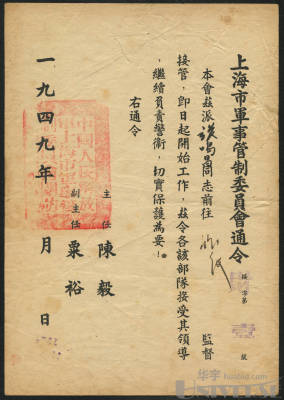 上海市軍事管制委員會通令
字第 號
本會茲派 同志前往 監督
接管，即日起開始工作，茲令各該部隊接受其領導
，繼續負責警衛，切實保護爲要！
右通令
主任 陳毅
副主任 粟裕
一九四九年 月 日
华宇 huabid.com
UNIVERSAL